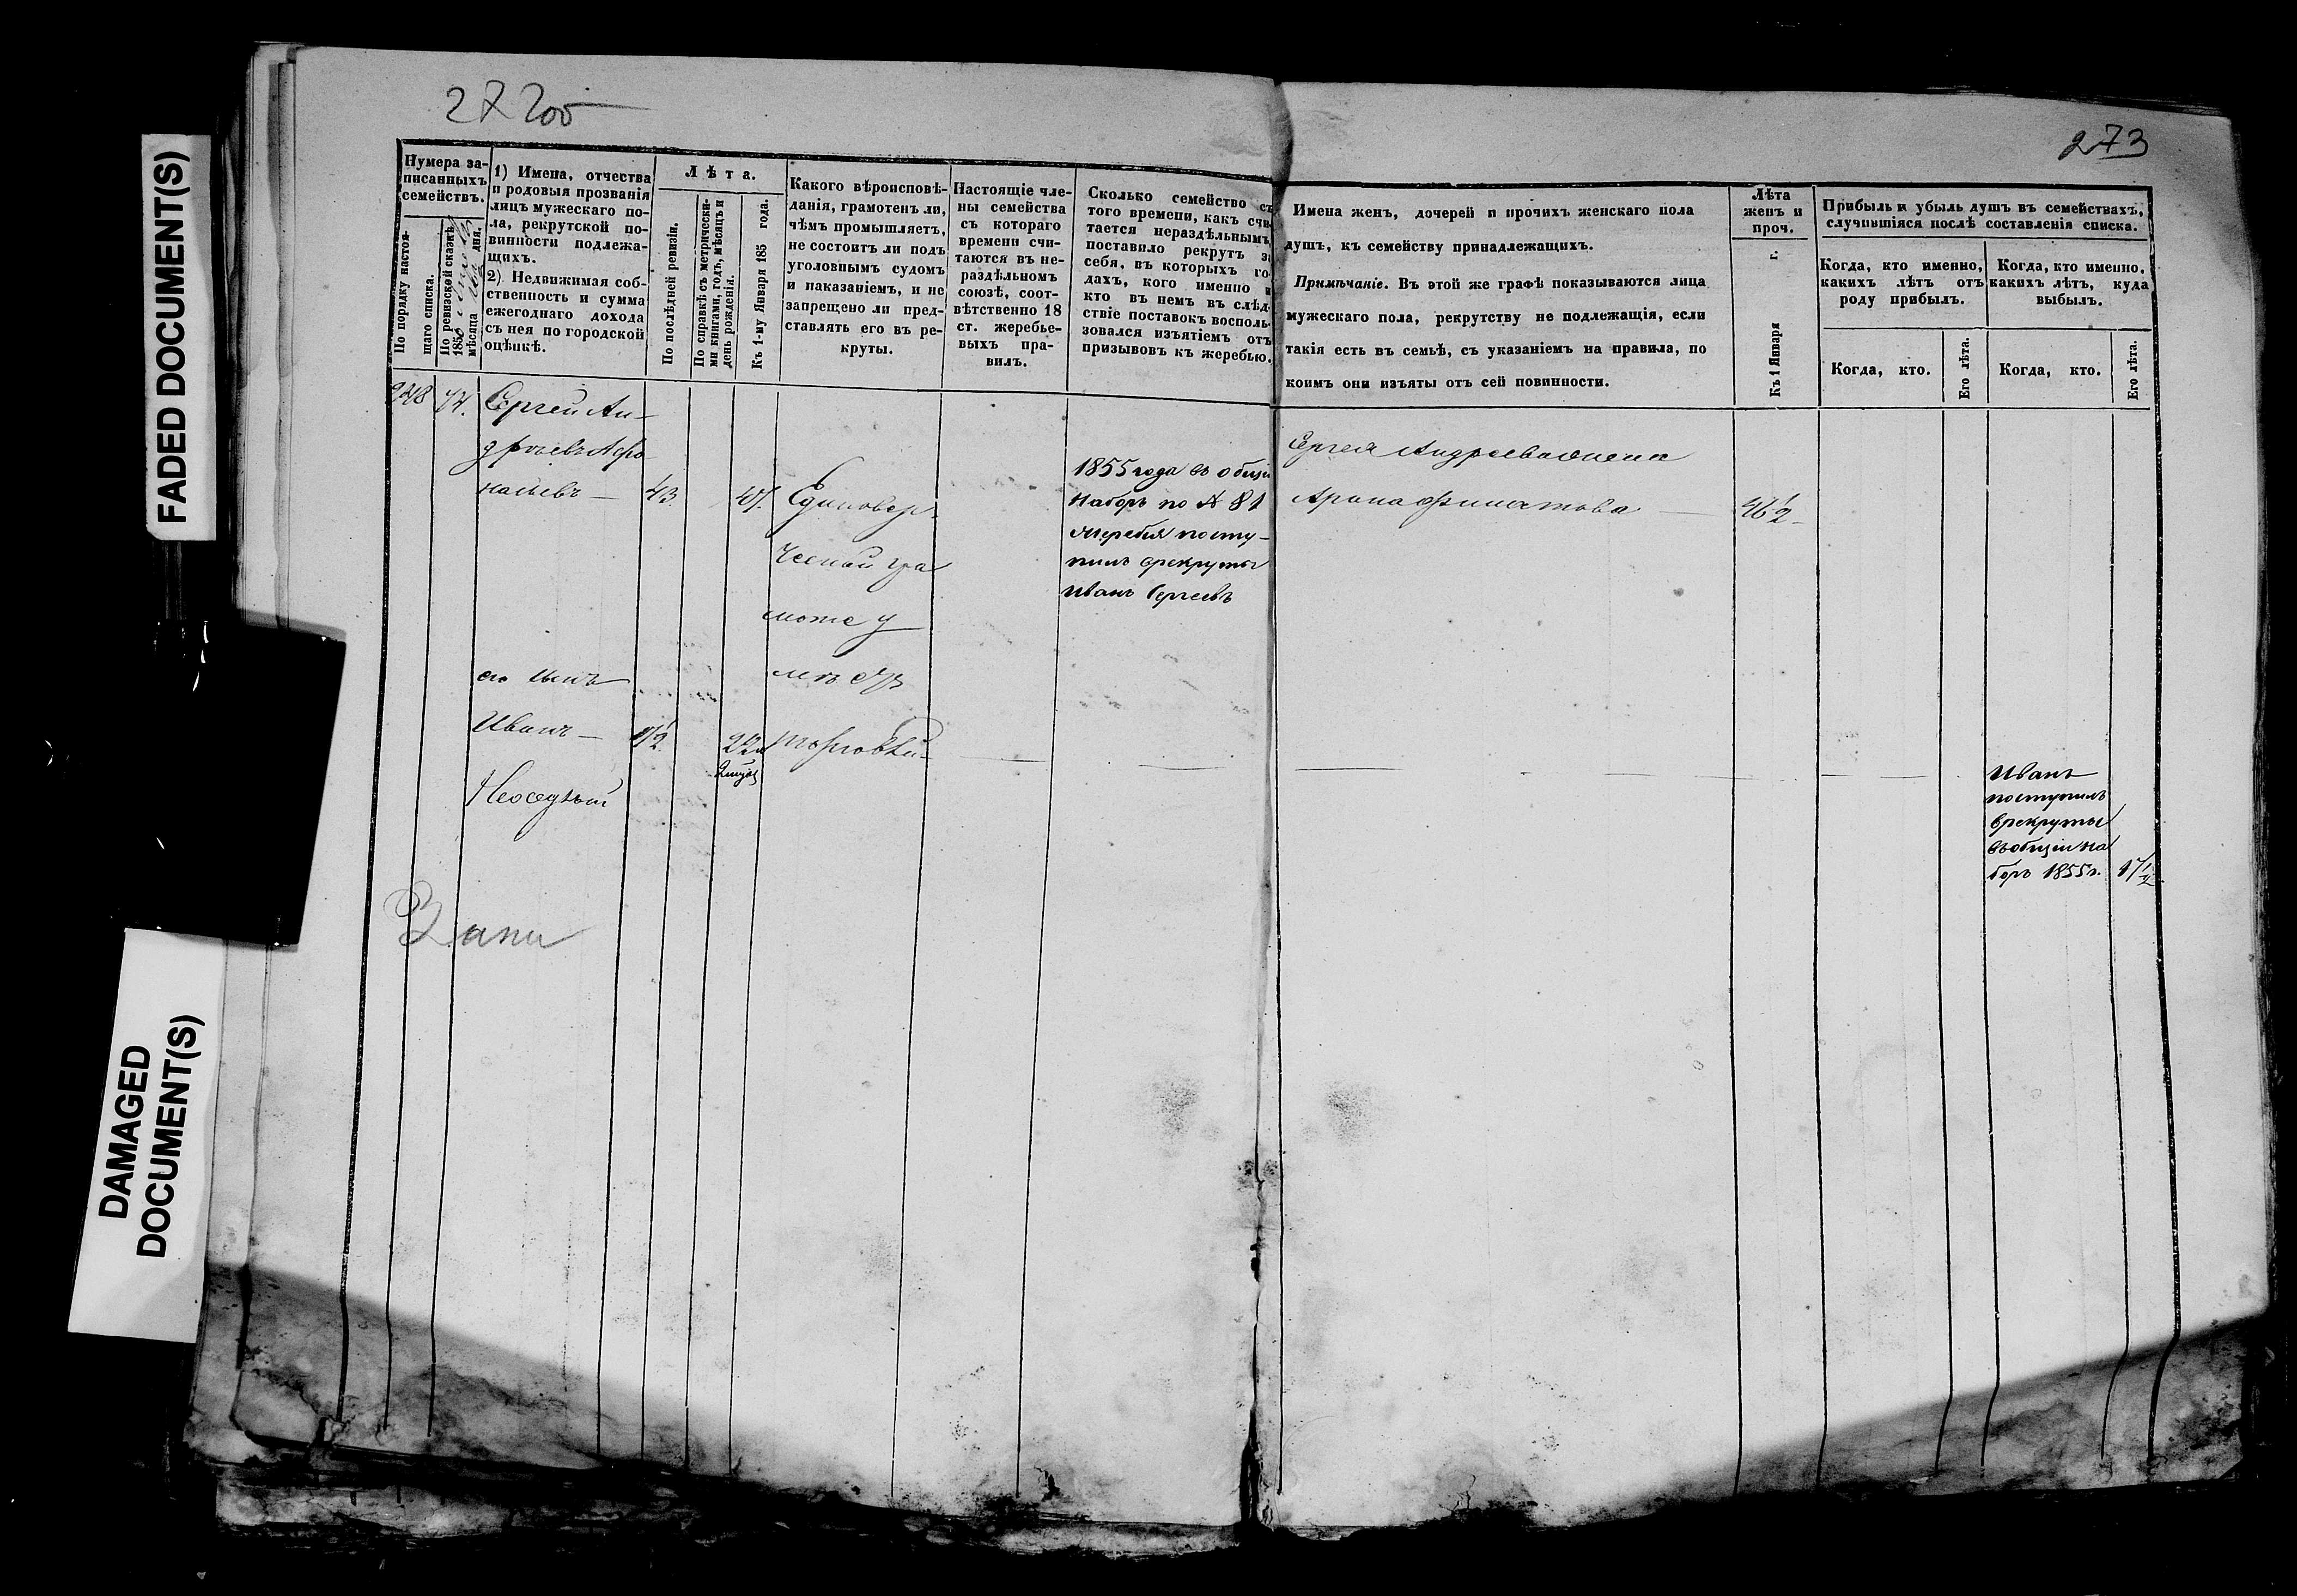 FADED DOCUMENT(S)
DAMAGED
DOCUMENT(S)
273
Нумера за-
писанныхъ
семействъ.
По порядку настоя-
щаго списка.
По ревизской сказкѣ
мѣсяца дня.
1) Имена, отчества
и родовыя прозванія
лицъ мужескаго по-
ла, рекрутской по-
винности подлежа-
щихъ.
2) Недвижимая соб-
ственность и сумма
ежегоднаго дохода
съ нея по городской
оцѣнкѣ.
Лѣта.
По послѣдней ревизіи.
По справкѣ съ метрически-
ми книгами, годъ, мѣсяцъ и
день рожденія.
Къ 1-му Января 185 года.
Какого вѣроисповѣ-
данія, грамотенъ ли,
чѣмъ промышляетъ,
не состоитъ ли подъ
уголовнымъ судомъ
и наказаніемъ, и не
запрещено ли пред-
ставлять его въ ре-
круты.
Настоящіе чле-
ны семейства
съ котораго
времени счи-
таются въ не-
раздѣльномъ
союзѣ, соот-
вѣтственно 18
ст. жеребье-
выхъ пра-
вилъ.
Сколько семейство съ
того времени, какъ счи-
тается нераздѣльнымъ,
поставило рекрутъ за
себя, въ которыхъ го-
дахъ, кого именно и
кто въ немъ въ слѣд-
ствіе поставокъ восполь-
зовался изъятіемъ отъ
призывовъ къ жеребью.
Имена женъ, дочерей и прочихъ женскаго пола
душъ, къ семейству принадлежащихъ.
Примѣчаніе. Въ этой же графѣ показываются лица
мужескаго пола, рекрутству не подлежащія, если
такія есть въ семьѣ, съ указаніемъ на правила, по
коимъ они изъяты отъ сей повинности.
Лѣта
женъ и
проч.
Къ 1 Января г.
Прибыль и убыль душъ въ семействахъ,
случившіяся послѣ составленія списка.
Когда, кто именно,
какихъ лѣтъ отъ
роду прибылъ.
Когда, кто именно,
какихъ лѣтъ, куда
выбылъ.
Когда, кто.
Его лѣта.
Когда, кто.
Его лѣта.
248
Сергей Ан-
дреевъ Афо
насьевъ — 43.
Единовер-
ческой гра
моте у
меетъ
его сынъ
Иванъ —
торговлей
1855 года въ общій
наборъ по № 81
жеребья посту-
пилъ врекруты
Иванъ Сергеевъ
Сергея Андреева жена
Арина Филатова
Иванъ
поступилъ
врекруты
въобщій на
боръ 1855г.